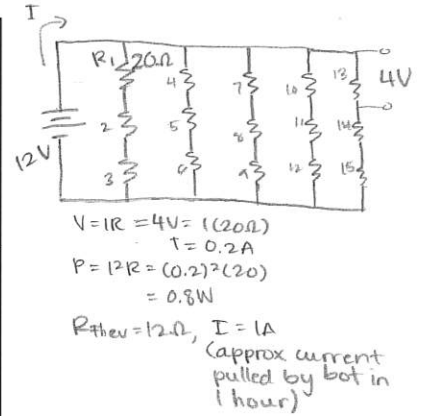 I
R1 20Ω
4
7
10
13
4V
2
5
8
11
14
12V
3
6
9
12
15
V=IR = 4V = I(20Ω)
I = 0.2A
P = I²R = (0.2)²(20)
= 0.8W
RThev = 12Ω, I = 1A
(approx current
pulled by bot in
1 hour)